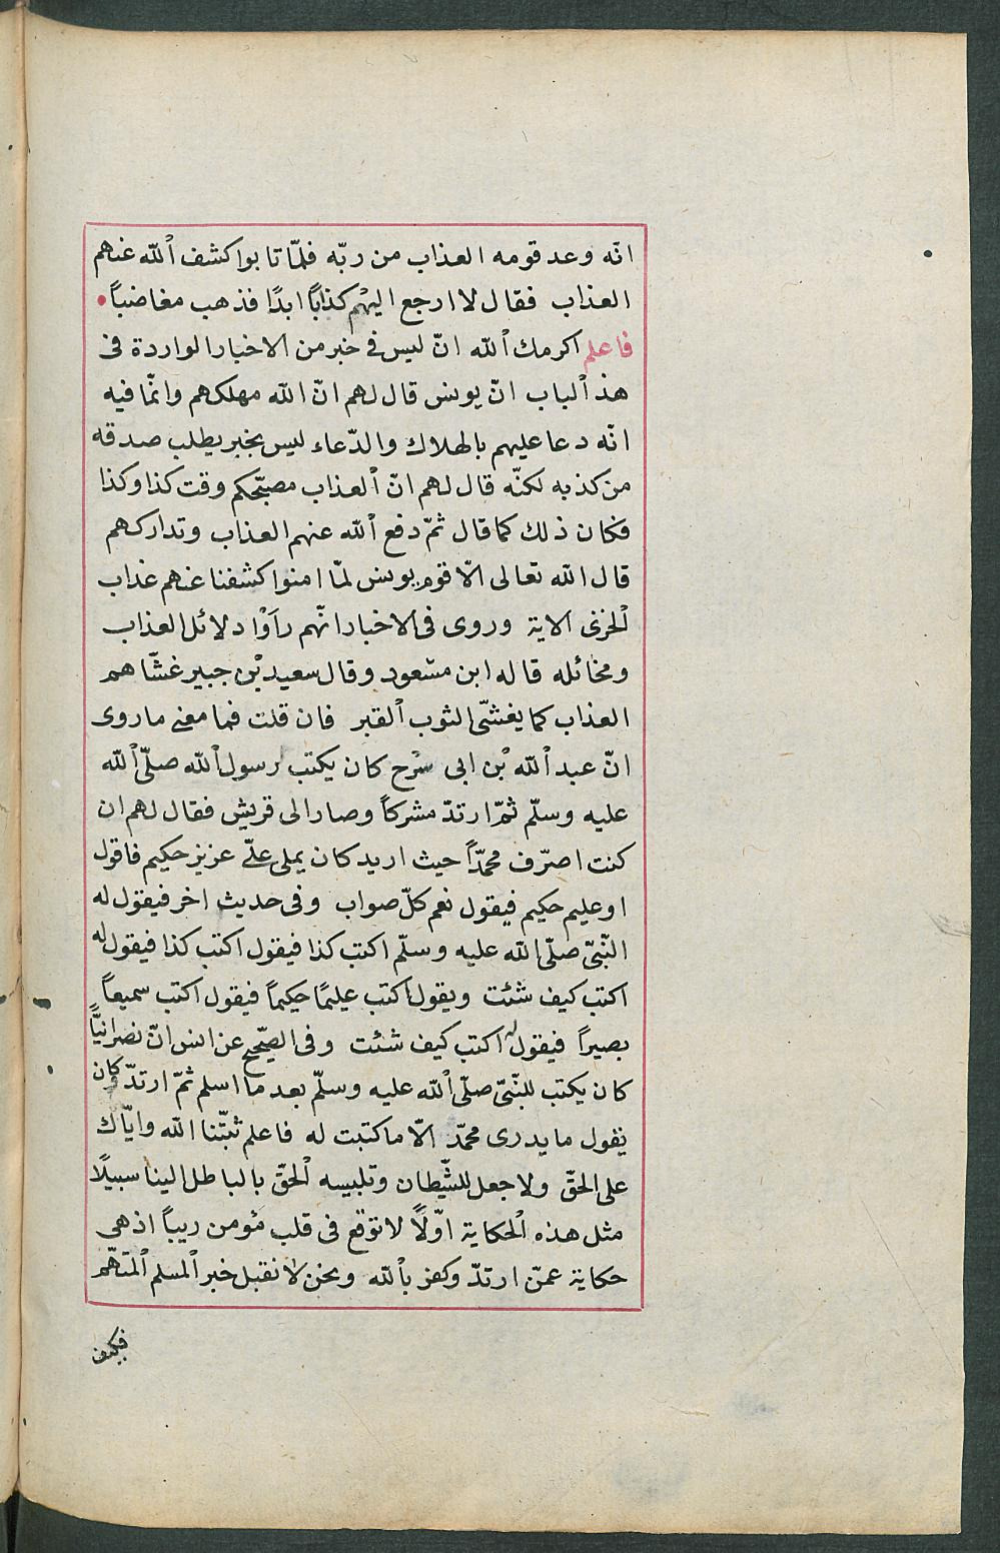 انّه وعد قومه العذاب من ربّه فلمّا تابوا كشف الله عنهم
العذاب فقال لا ارجع اليهم كذابًا ابدًا فذهب مغاضباً
فاعلم اكرمك الله انّ ليس فى خبر من الاخبار الواردة فى
هذ الباب انّ يونس قال لهم انّ الله مهلكهم وانّما فيه
انّه دعا عليهم بالهلاك والدّعاء ليس بخبر يطلب صدقه
من كذبه لكنّه قال لهم انّ العذاب مصبّحكم وقت كذا وكذا
فكان ذلك كما قال ثمّ دفع الله عنهم العذاب وتداركهم
قال الله تعالى الّا قوم يونس لمّا امنوا كشفنا عنهم عذاب
الخزى الاية وروى فى الاخبار انّهم رأوْا دلائل العذاب
ومخائله قاله ابن مسْعود وقال سعيد بْن جبير غشّاهم
العذاب كما يغشّى الثوب القبر فان قلت فما معنى ما روى
انّ عبد الله بْن ابى سرْح كان يكتب لرسول الله صلّى الله
عليه وسلّم ثمّ ارتدّ مشركاً وصار الى قريش فقال لهم ان
كنت اصرّف محمّداً حيث اريد كان يملى علىّ عزيز حكيم فاقول
او عليم حكيم فيقول نعم كلّ صواب وفى حديث اخر فيقول له
النّبىّ صلّى الله عليه وسلّم اكتب كذا فيقول اكتب كذا فيقول له
اكتب كيف شئت ويقول اكتب عليمًا حكيماً فيقول اكتب سميعاً
بصيراً فيقول له اكتب كيف شئت وفى الصّحيح عن انس انّ نصرانيّاً
كان يكتب للنّبىّ صلّى الله عليه وسلّم بعد ما اسلم ثمّ ارتدّ وكان
يقول ما يدرى محمّد الّا ما كتبت له فاعلم ثبّتنا الله وايّاك
على الحقّ ولا جعل للشّيطان وتلبيسه الحقّ بالباطل الينا سبيلًا
مثل هذه الحكاية اوّلًا لا توقع فى قلب مؤمن ريباً اذ هى
حكاية عمّن ارتدّ وكفر بالله ونحن لا نقبل خبر المسلم المتّهم
فكيف